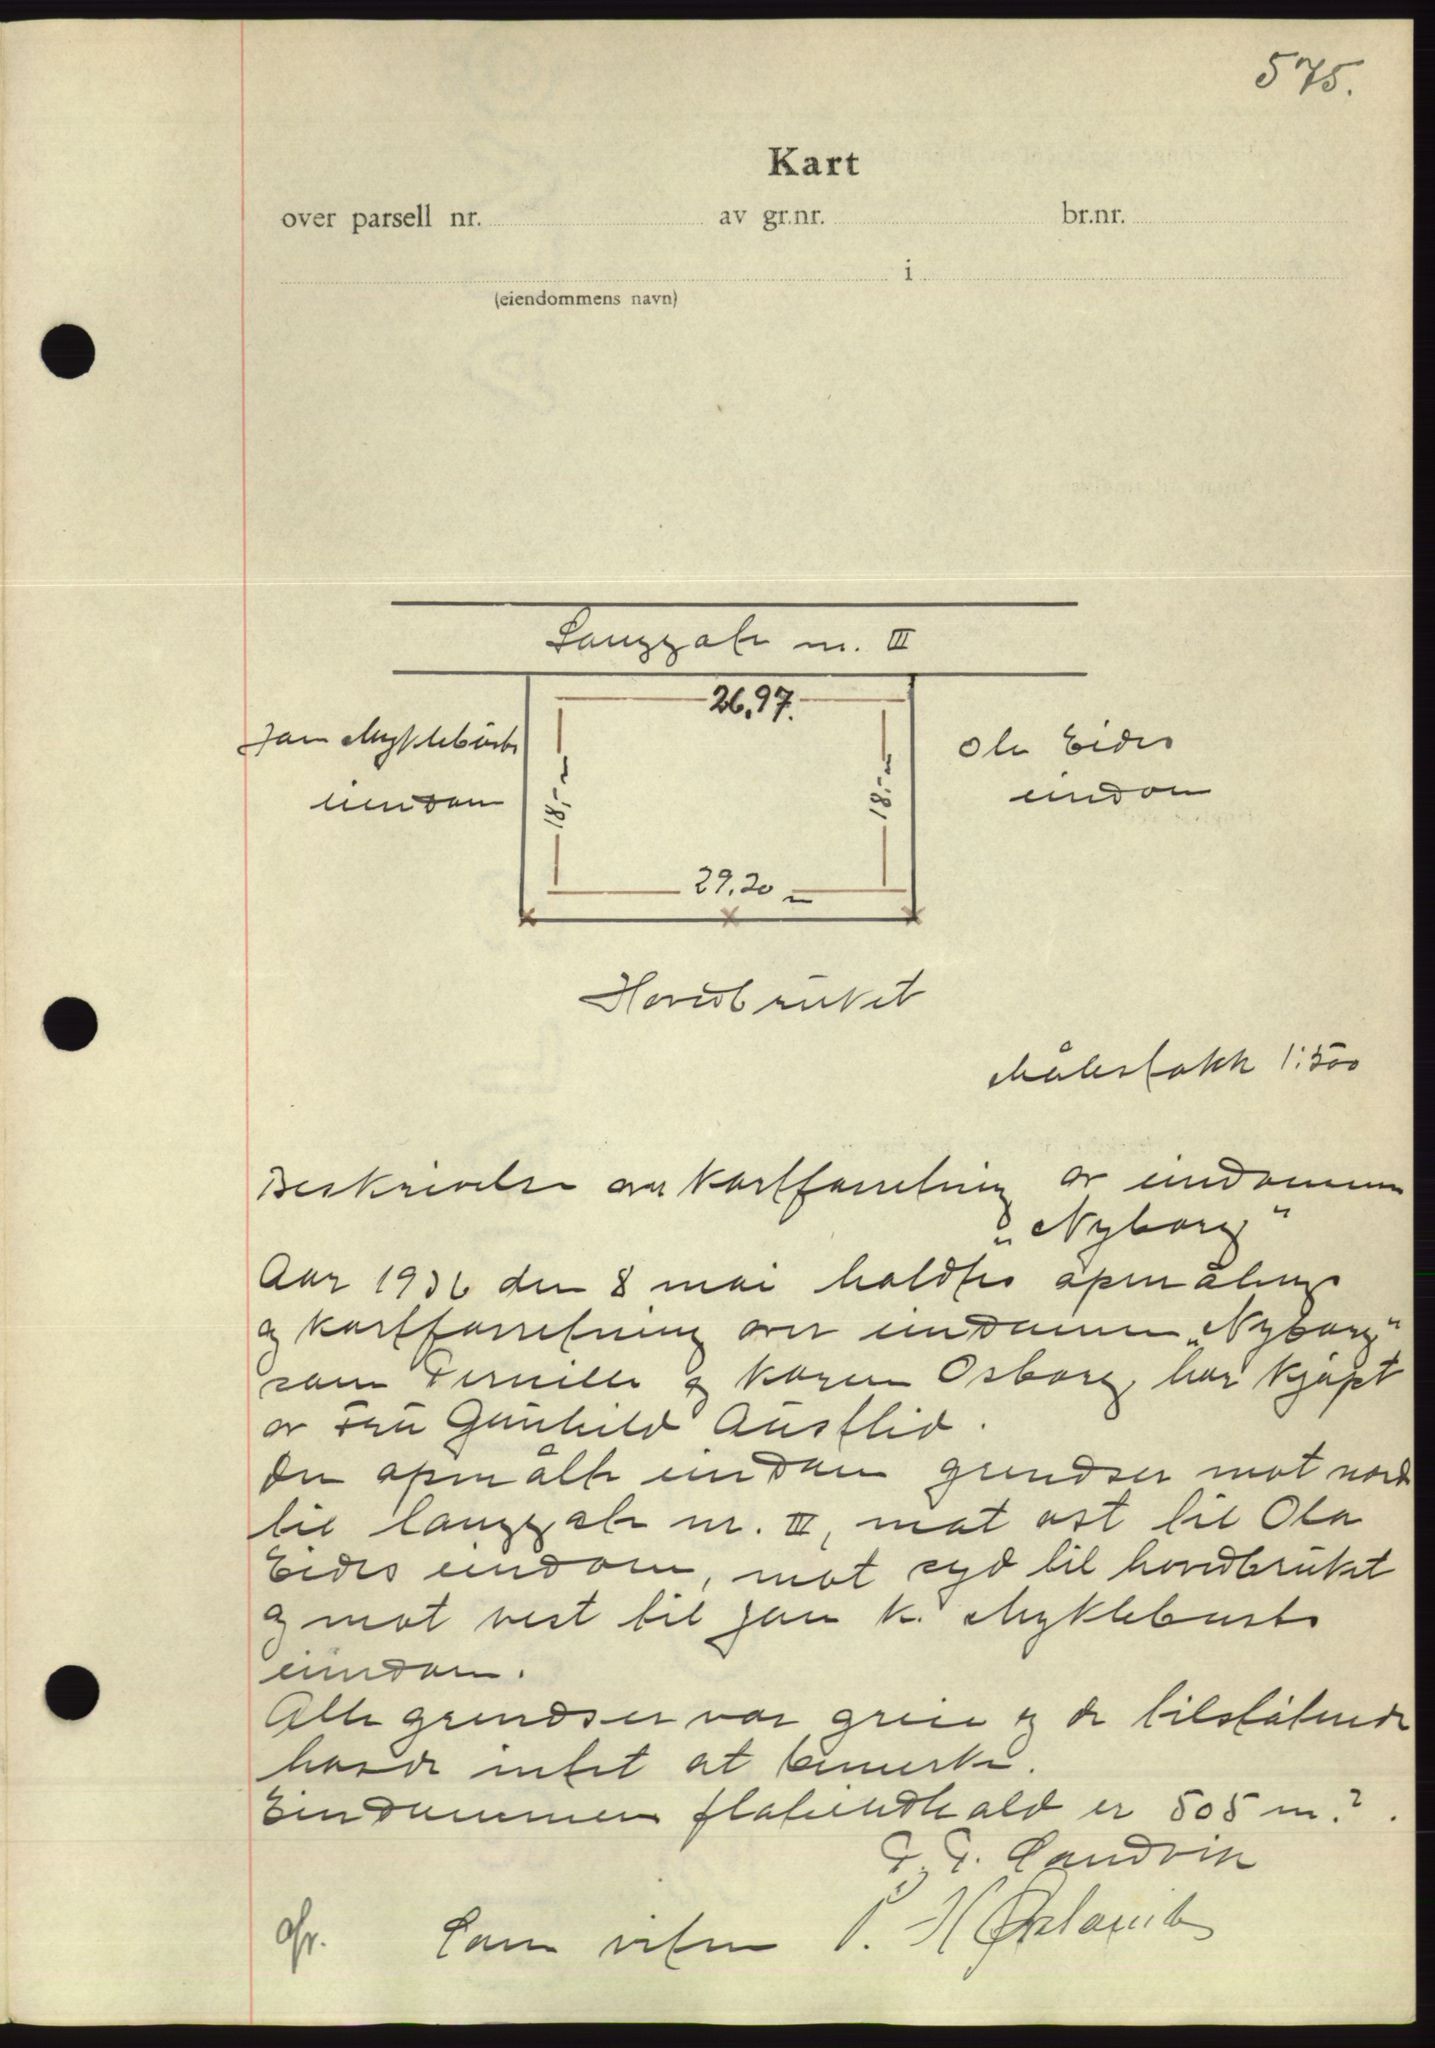 575.
Kart
over parsell nr. av gr.nr. br.nr.
i
(eiendommens navn)
Langgate nr. III
26,97.
Jan Myklebusts
eiendom
18,- m
18,- m
Ola Eides
eiendom
29,20 m
Hovedbruket
Målestokk 1:500
Beskrivelse over kartforretning av eiendommen
"Nyborg"
Aar 1936 den 8 mai holdtes opmålings
og kartforretning over eiendommen "Nyborg"
som Pernille og Karen Osborg, har kjøpt
av Fru Gunhild Austlid.
Den opmålte eiendom grendser mot nord
til langgate nr. III, mot øst til Ola
Eides eiendom, mot syd til hovedbruket
og mot vest til Jan K. Myklebusts
eiendom.
Alle grendser var greie og de tilstøtende
hadde intet at bemerke.
Eiendommen flateindhold er 505 m².
P. P. Sandvik
Som vitne P. H.